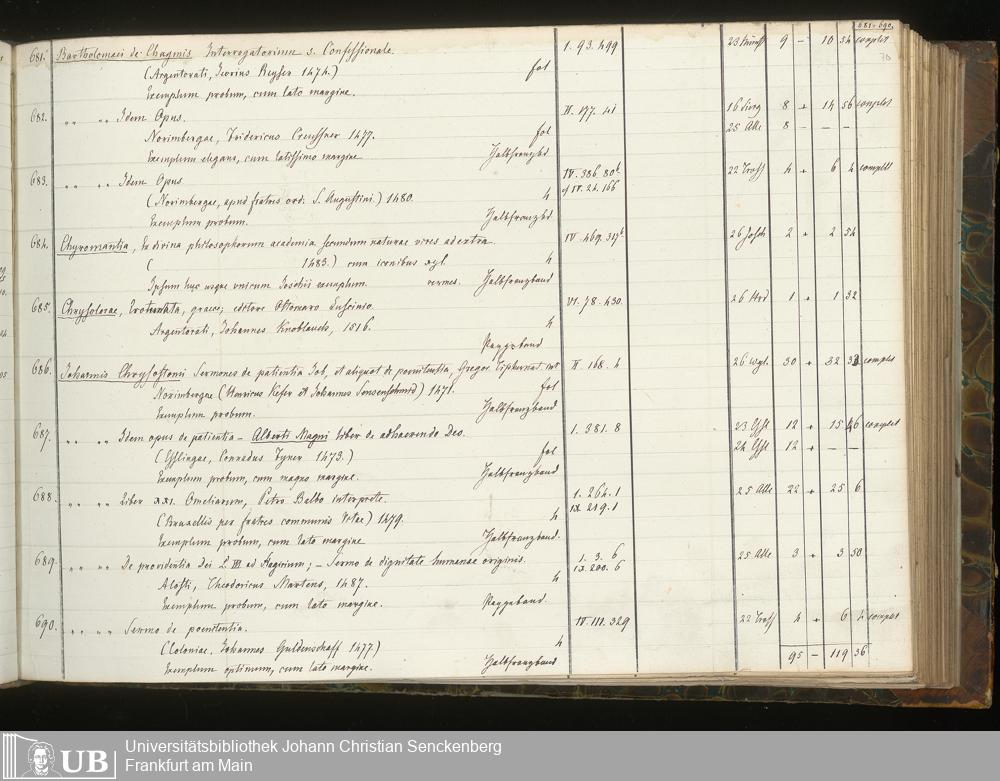 681-690.
70
681. Bartholomaei de Chaymis Interrogatorium s. Confessionale. 1. 93. 499 9 – 10 54 complet
(Argentorati, Georius Reyser 1474.) fol
Exemplum probum, cum lato margine.
682. „ „ „ Idem Opus. II. 177. 41 8 + 14 56 complet
Norimbergae, Fridericus Creussner 1477. fol 25 Alle 8 – – –
Exemplum elegans, cum latissimo margine Halbfranzbd
683. „ „ „ Idem Opus IV. 386. 80b 22 Tross 4 + 6 4 complet
(Norimbergae, apud fratres ord. S. Augustini.) 1480. 4 cf IV. 26. 166
Exemplum probum. Halbfranzbd
684. Chyromantia, Ex divina philosophorum academia secundum naturae vires ad extra. IV. 469. 319b 2 + 2 54
( 1483.) cum iconibus xyl. 4
Ipsum huc usque unicum exemplum. Halbfranzband
685. Chrysolorae, Erotemata, graece; editore Ottomaro Luscinio. VI. 78. 430. 1 + 1 32
Argentorati, Johannes Knoblauch, 1516. 4
Pappeband
686. Johannis Chrysostomi Sermones de patientia Job, et aliquot de poenitentia, Gregor. Tiphernat. int II. 168. 4 30 + 32 complet
Norimbergae (Henricus Kefer et Johannes Sensenschmid) 1471. fol
Exemplum probum. Halbfranzband
687. „ „ „ Idem opus de patientia – Alberti Magni liber de adhaerendo Deo. 1. 381. 8 12 + 15 46 complet
(Esslingae, Conradus Fyner 1473.) fol 12 + – –
Exemplum probum, cum magno margine. Halbfranzband
688. „ „ „ Liber XXI. Omeliarum, Petro Balbo interprete. 1. 264. 1 25 Alle 22 + 25 6
(Bruxellis per fratres communis Vitae) 1479. 4 IX. 219. 1
Exemplum probum, cum lato margine Halbfranzband.
689. „ „ „ De providentia Dei L. III ad Stagirium; – Sermo de dignitate humanae originis. 1. 3. 6 25 Alle 3 + 3 50
Alosti, Theodoricus Martens, 1487. 4 IX. 200. 6
Exemplum probum, cum lato margine. Pappeband.
690. „ „ „ Sermo de poenitentia. IV. 111. 329 22 Tross 4 + 6 4 complet
(Coloniae, Johannes Guldenschaff 1477.) 4
Exemplum optimum, cum lato margine. Halbfranzband 95 – 119 36
UB
Universitätsbibliothek Johann Christian Senckenberg
Frankfurt am Main